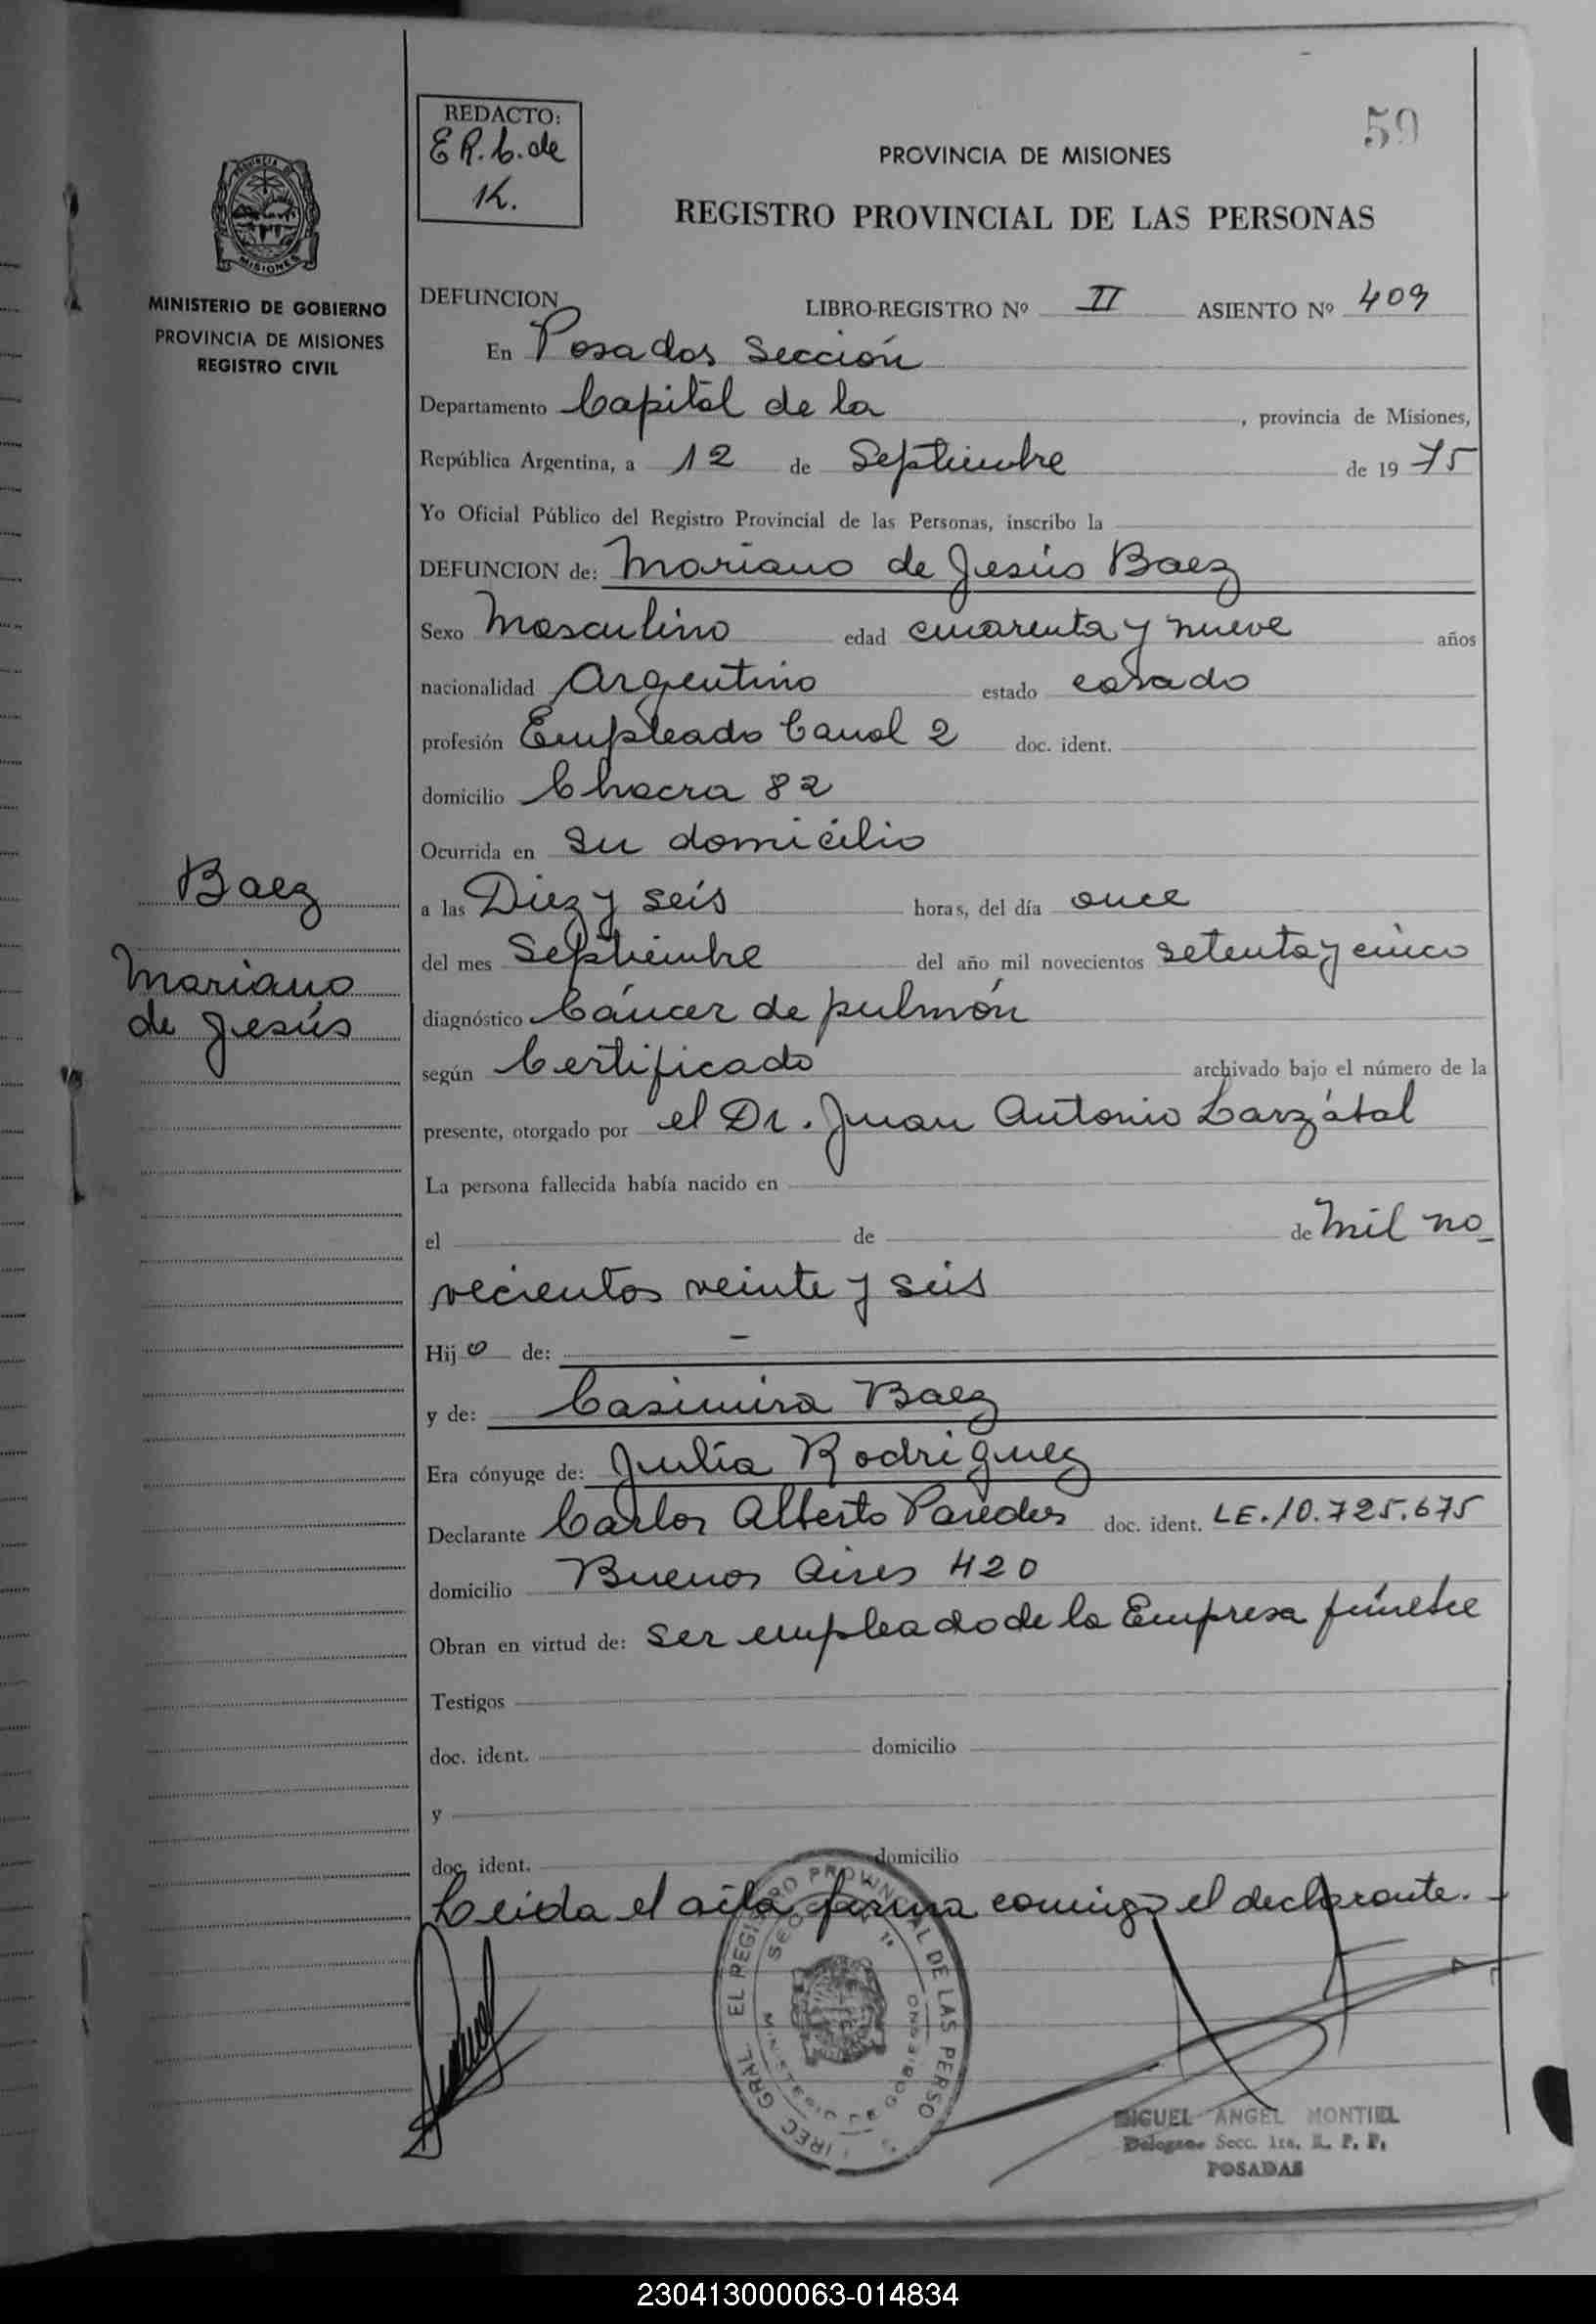 REDACTO:
E R. C. de
K.
59
PROVINCIA DE MISIONES
REGISTRO PROVINCIAL DE LAS PERSONAS
MINISTERIO DE GOBIERNO
PROVINCIA DE MISIONES
REGISTRO CIVIL
DEFUNCION LIBRO-REGISTRO Nº II ASIENTO Nº 409
En Posadas Sección
Departamento Capital de la , provincia de Misiones,
República Argentina, a 12 de Septiembre de 19 75
Yo Oficial Público del Registro Provincial de las Personas, inscribo la
DEFUNCION de: Mariano de Jesús Baez
Sexo Masculino edad cuarenta y nueve años
nacionalidad Argentino estado casado
profesión Empleado Canal 2 doc. ident.
domicilio Chacra 82
Ocurrida en su domicilio
Baez
a las Diez y seis horas, del día once
del mes Septiembre del año mil novecientos setenta y cinco
Mariano
de Jesús
diagnóstico Cáncer de pulmón
según Certificado archivado bajo el número de la
presente, otorgado por el Dr. Juan Antonio Larzábal
La persona fallecida había nacido en
el de de Mil no_
vecientos veinte y seis
Hij o de: -
y de: Casimira Baez
Era cónyuge de: Julia Rodriguez
Declarante Carlos Alberto Paredes doc. ident. LE. 10.725.675
domicilio Buenos Aires 420
Obran en virtud de: ser empleado de la Empresa fúnebre
Testigos
doc. ident. domicilio
y
doc. ident. domicilio
Leida el acta firma comigo el declarante.-
MIGUEL ANGEL MONTIEL
Delegado Secc. 1ra. R. P. P.
POSADAS
230413000063-014834